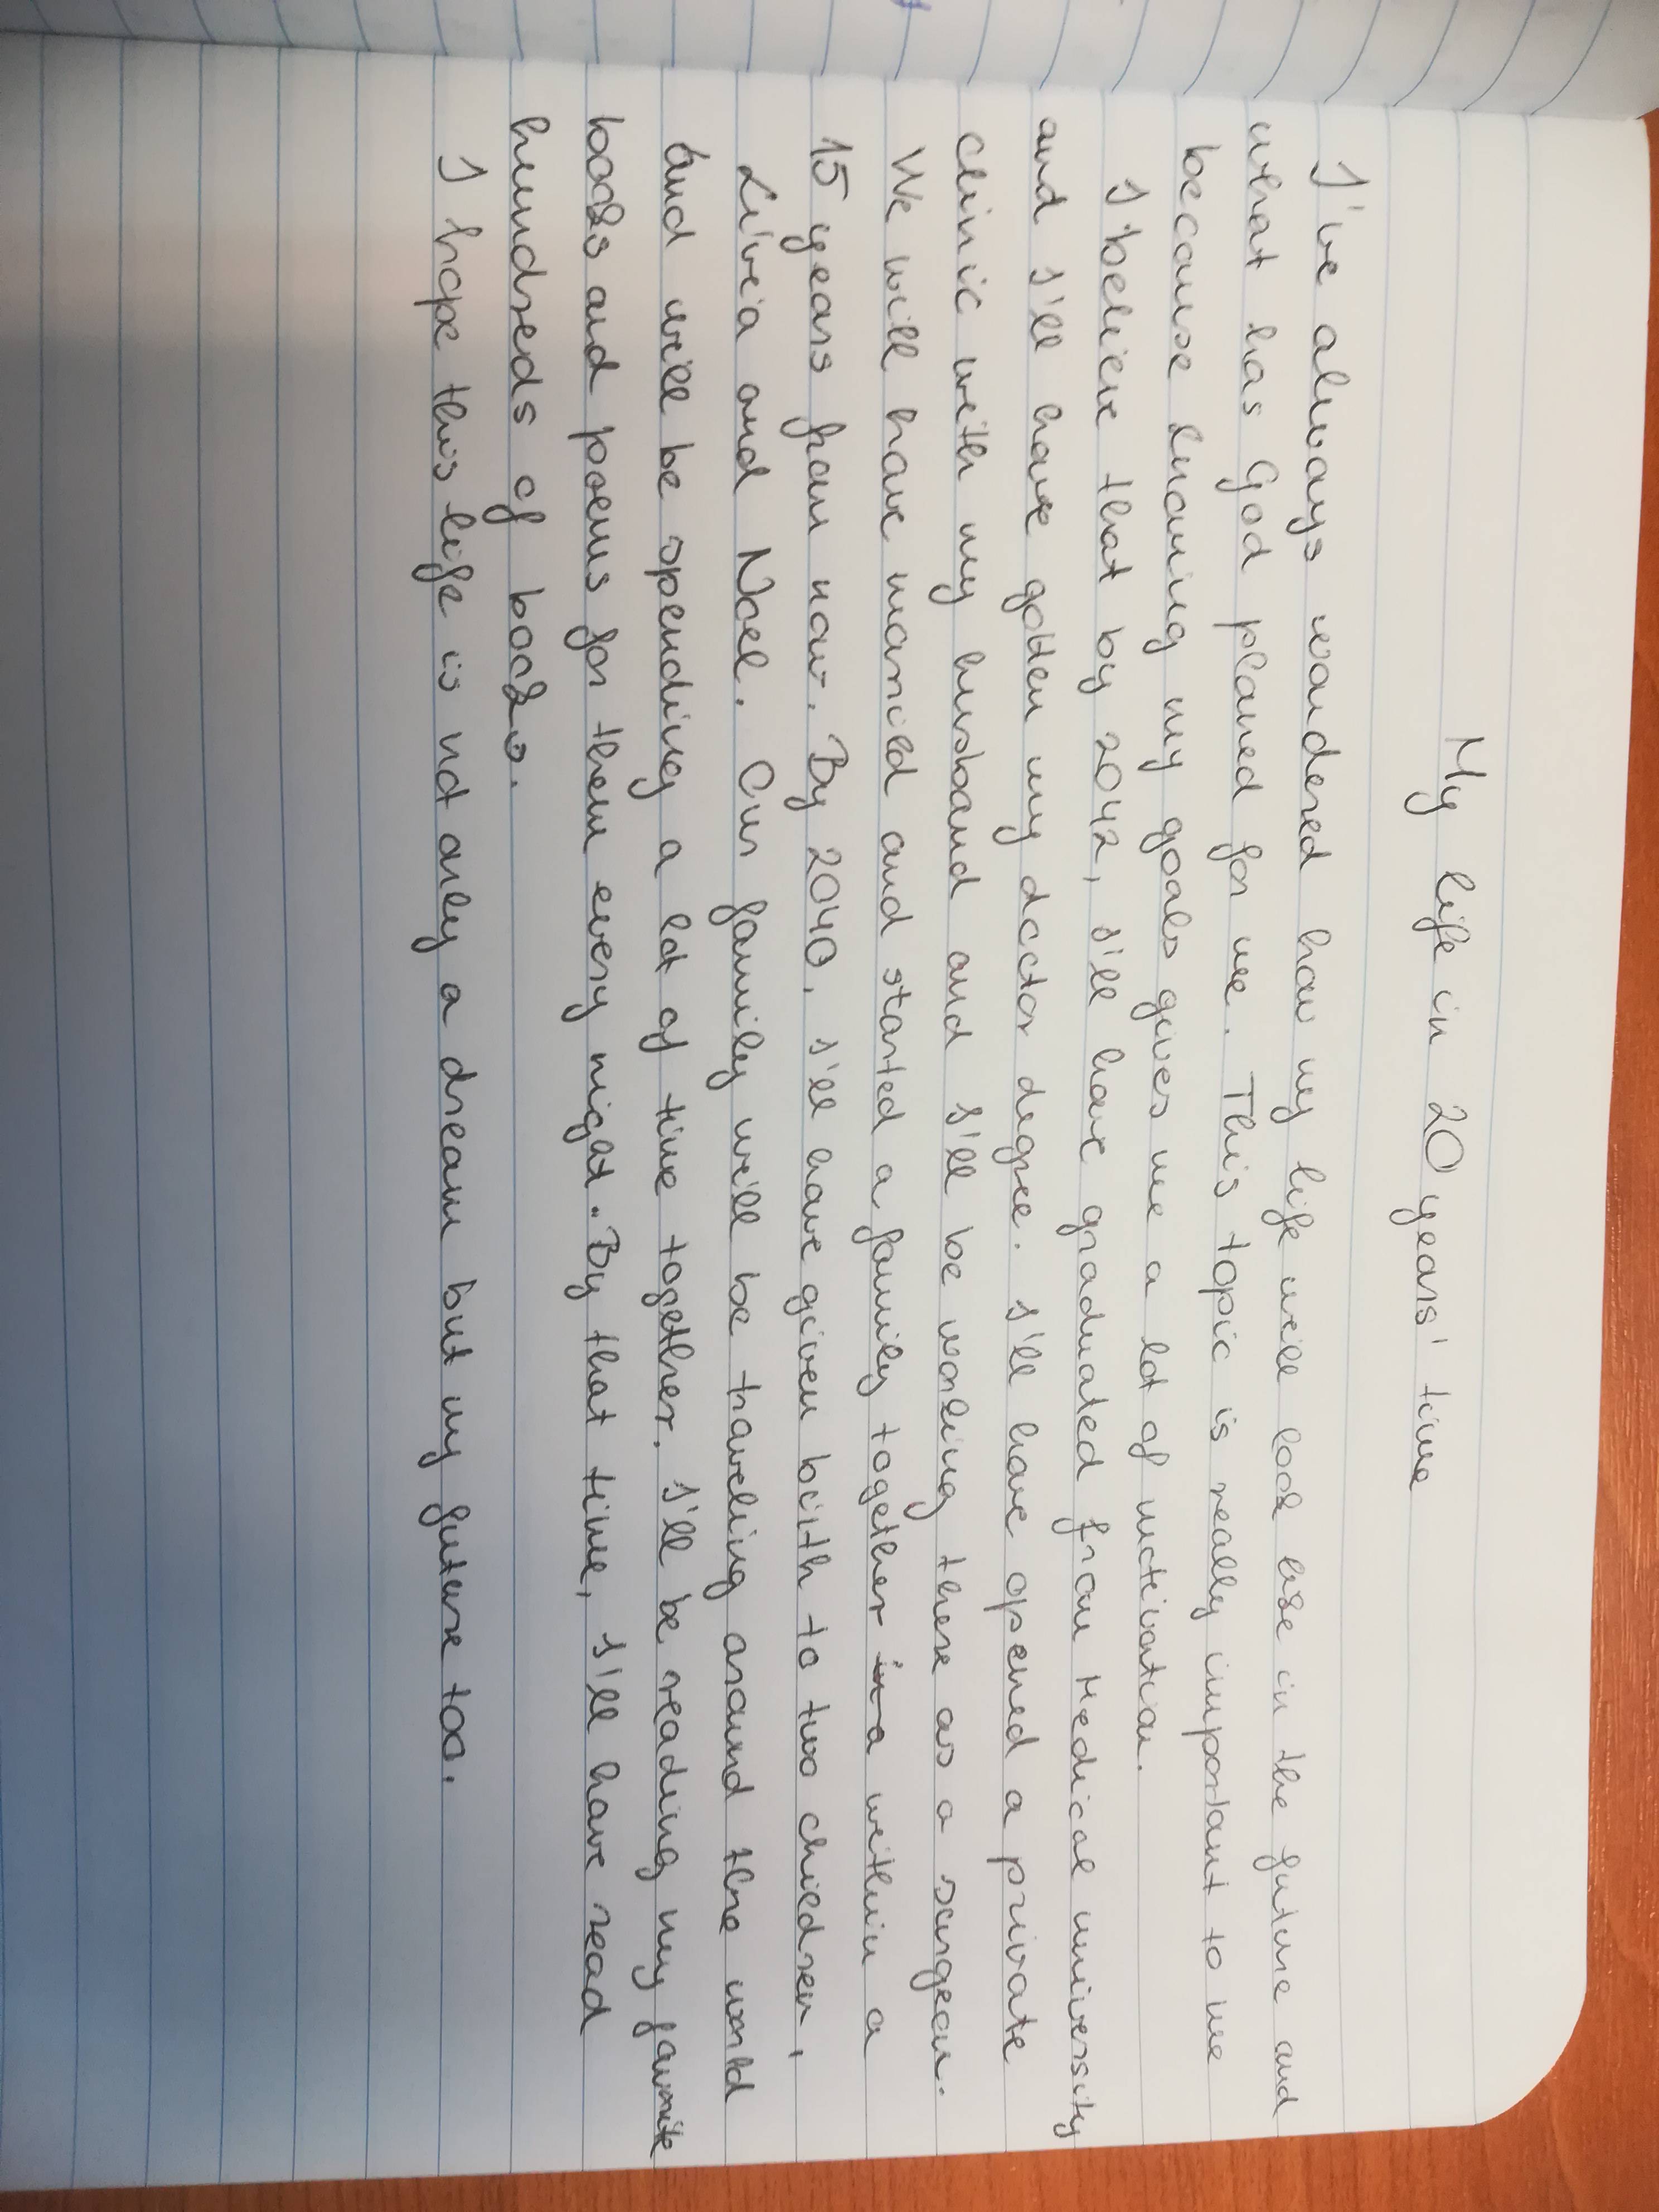 My life in 20 years' time
I've always wondered how my life will look like in the future and
what has God planed for me. This topic is really important to me
because knowing my goals gives me a lot of motivation.
I believe that by 2042, I'll have graduated from Medical university
and I'll have gotten my doctor degree. I'll have opened a private
clinic with my husband and I'll be working there as a surgeon.
We will have married and started a family together in a within a
15 years from now. By 2040, I'll have given birth to two children,
Livia and Noel. Our family will be traveling around the world
and will be spending a lot of time together. I'll be reading my favorite
books and poems for them every night. By that time, I'll have read
hundreds of books.
I hope this life is not only a dream but my future too.